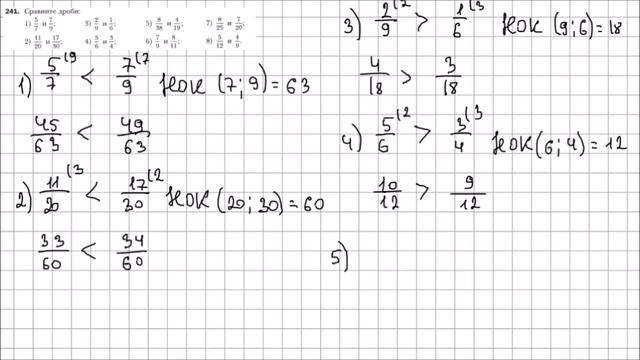 241. Сравните дроби:
1) 5/7 и 7/9; 3) 2/9 и 1/6; 5) 8/38 и 4/19; 7) 8/25 и 7/20;
2) 11/20 и 17/30; 4) 5/6 и 3/4; 6) 7/9 и 8/11; 8) 5/12 и 4/9.
1) 5/7 (9 < 7/9 (7 НОК (7; 9) = 63
45/63 < 49/63
2) 11/20 (3 < 17/30 (2 НОК (20; 30) = 60
33/60 < 34/60
3) 2/9 (2 > 1/6 (3 НОК (9; 6) = 18
4/18 > 3/18
4) 5/6 (2 > 3/4 (3 НОК (6; 4) = 12
10/12 > 9/12
5)